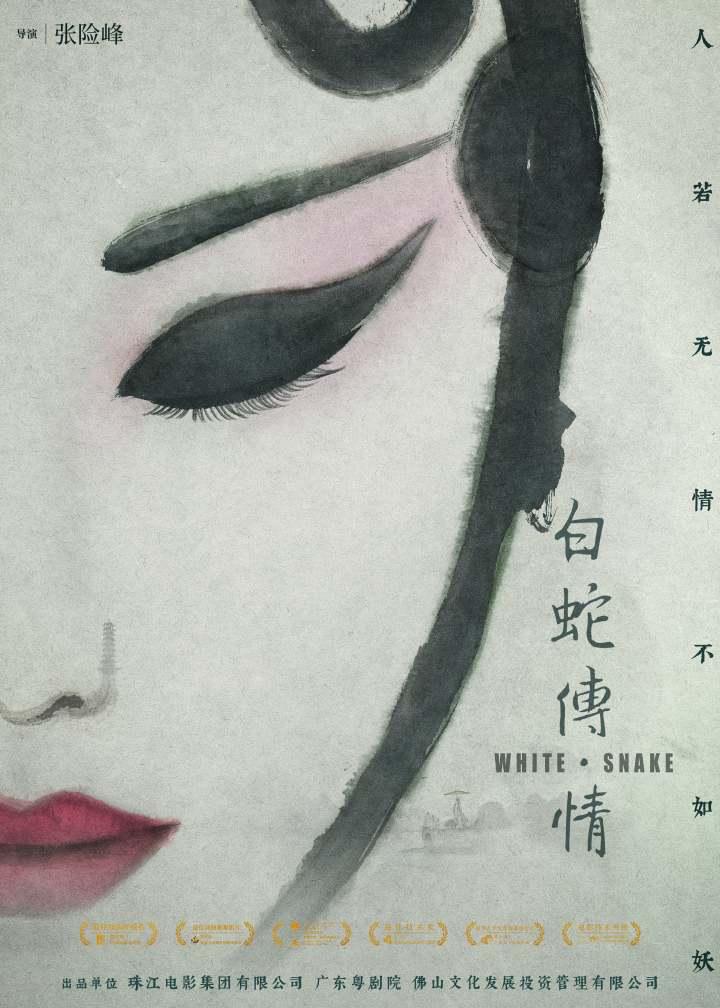 导演 张险峰
人若无情不如妖
白蛇傳情
WHITE · SNAKE
出品单位 珠江电影集团有限公司 广东粤剧院 佛山文化发展投资管理有限公司